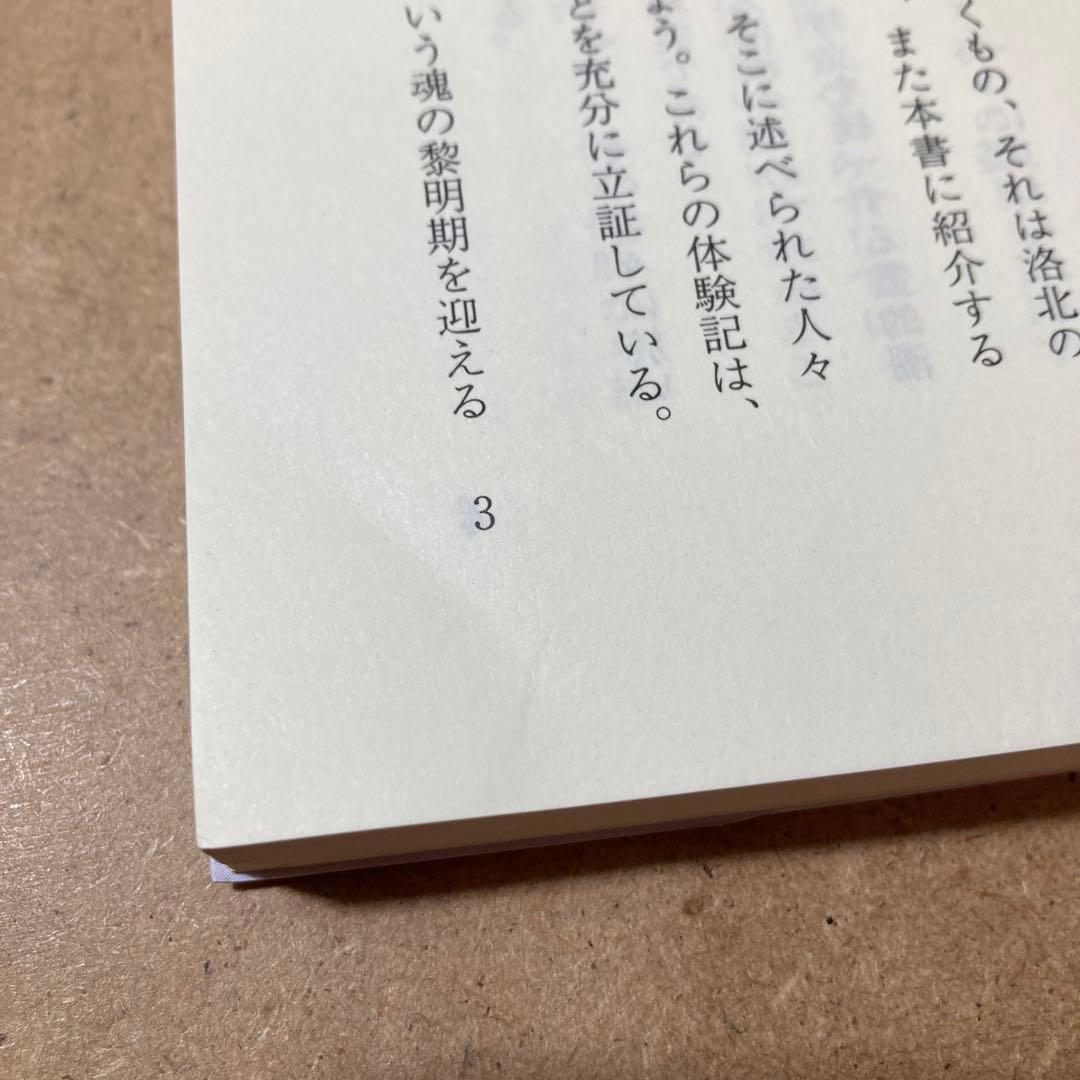 くもの、それは洛北の
また本書に紹介する
そこに述べられた人々
よう。これらの体験記は、
とを充分に立証している。
いう魂の黎明期を迎える
3